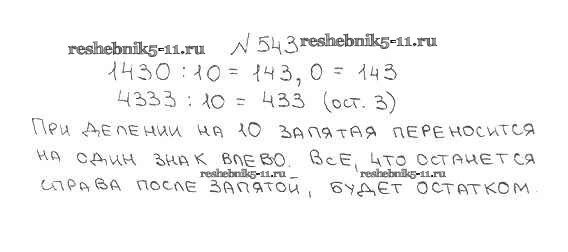 reshebnik5-11.ru № 543 reshebnik5-11.ru
1430 : 10 = 143,0 = 143
4333 : 10 = 433 (ост. 3)
При делении на 10 запятая переносится
на один знак влево. Все, что останется
reshebnik5-11.ru reshebnik5-11.ru
справа после запятой, будет остатком.